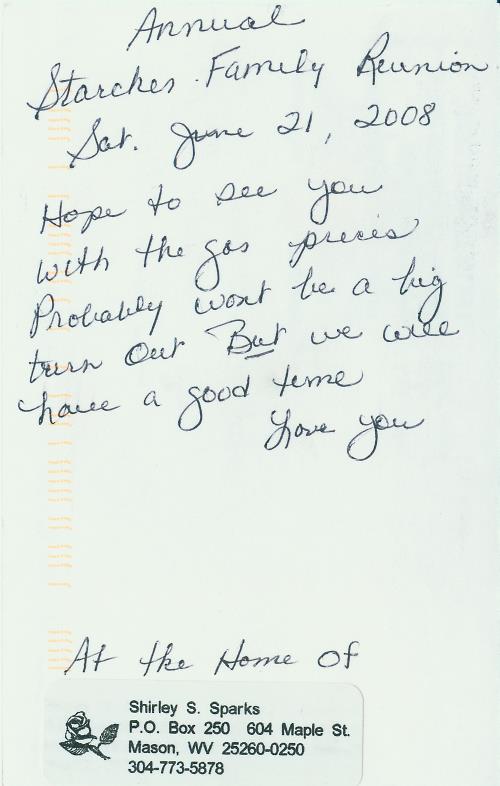 Annual
Starcher Family Reunion
Sat. June 21, 2008
Hope to see you
with the gas preces
Probably wont be a big
turn Out But we will
have a good time
Love you
At the Home Of
Shirley S. Sparks
P.O. Box 250 604 Maple St.
Mason, WV 25260-0250
304-773-5878